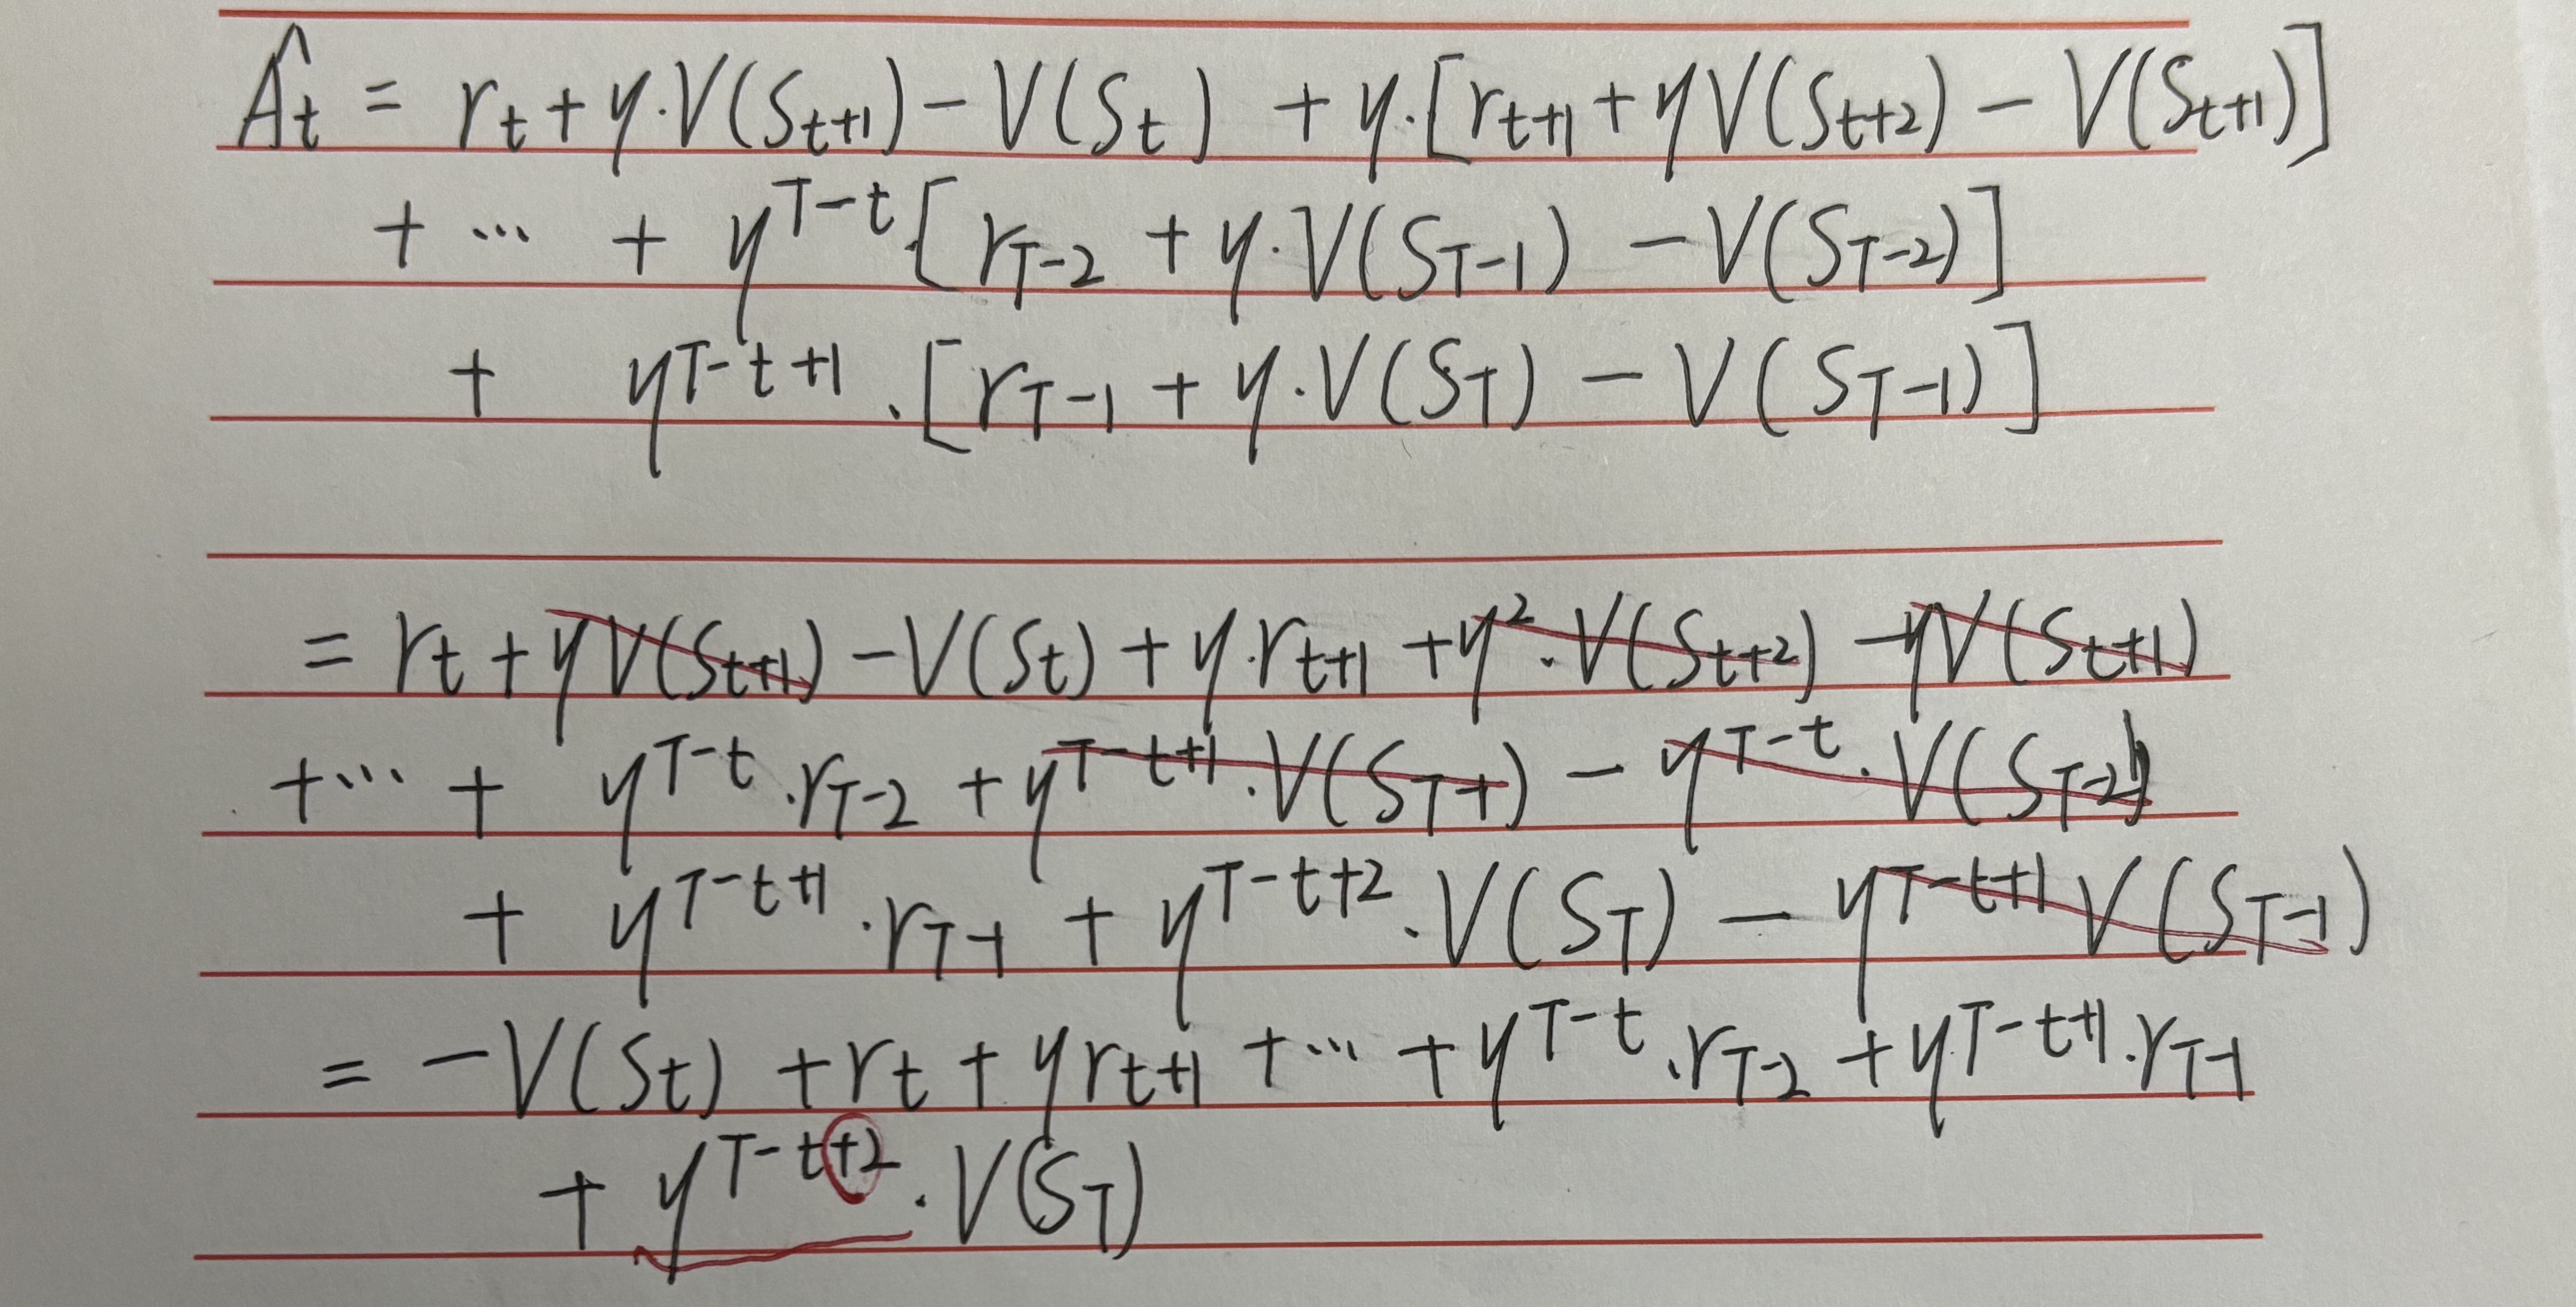 Ât = rt + γ·V(St+1) − V(St) + γ·[rt+1 + γV(St+2) − V(St+1)]
+ ··· + γ^T−t·[rT−2 + γ·V(ST−1) − V(ST−2)]
+ γ^T−t+1·[rT−1 + γ·V(ST) − V(ST−1)]
= rt + γV(St+1) − V(St) + γ·rt+1 + γ²·V(St+2) − γV(St+1)
+ ··· + γ^T−t·rT−2 + γ^T−t+1·V(ST−1) − γ^T−t·V(ST−2)
+ γ^T−t+1·rT−1 + γ^T−t+2·V(ST) − γ^T−t+1V(ST−1)
= −V(St) + rt + γrt+1 + ··· + γ^T−t·rT−2 + γ^T−t+1·rT−1
+ γ^T−t+2·V(ST)